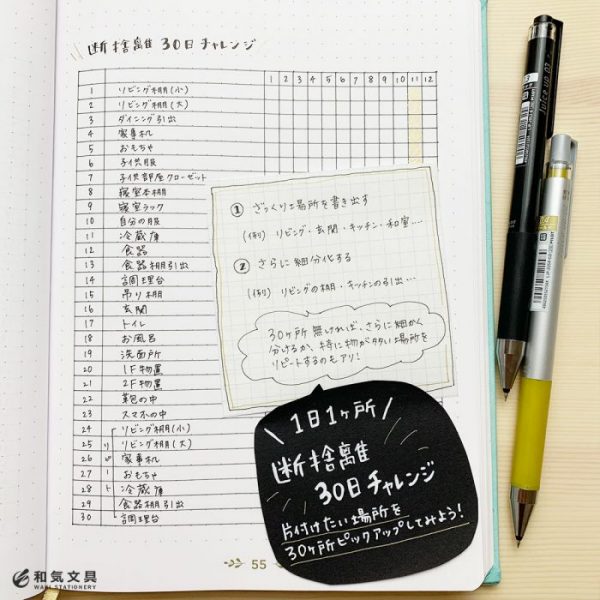 断捨離 30日チャレンジ
1 2 3 4 5 6 7 8 9 10 11 12
1 リビング棚(小)
2 リビング棚(大)
3 ダイニング引出
4 家事机
5 おもちゃ
6 子供服
7 子供部屋クローゼット
8 寝室本棚
9 寝室ラック
10 自分の服
11 冷蔵庫
12 食器
13 食器棚引出
14 調理台
15 吊り棚
16 玄関
17 トイレ
18 お風呂
19 洗面所
20 1F物置
21 2F物置
22 鞄の中
23 スマホの中
24 リビング棚(小)
25 リビング棚(大)
26 家事机
27 おもちゃ
28 冷蔵庫
29 食器棚引出
30 調理台
リピート
① ざっくり場所を書き出す
(例) リビング・玄関・キッチン・和室…
② さらに細分化する
(例) リビングの棚・キッチンの引出…
30ヶ所無ければ、さらに細かく
分けるか、特に物が多い場所を
リピートするのもアリ!
1日1ヶ所
断捨離
30日チャレンジ
片付けたい場所を
30ヶ所ピックアップしてみよう!
55
和気文具
WAKI STATIONERY
Juice up 03